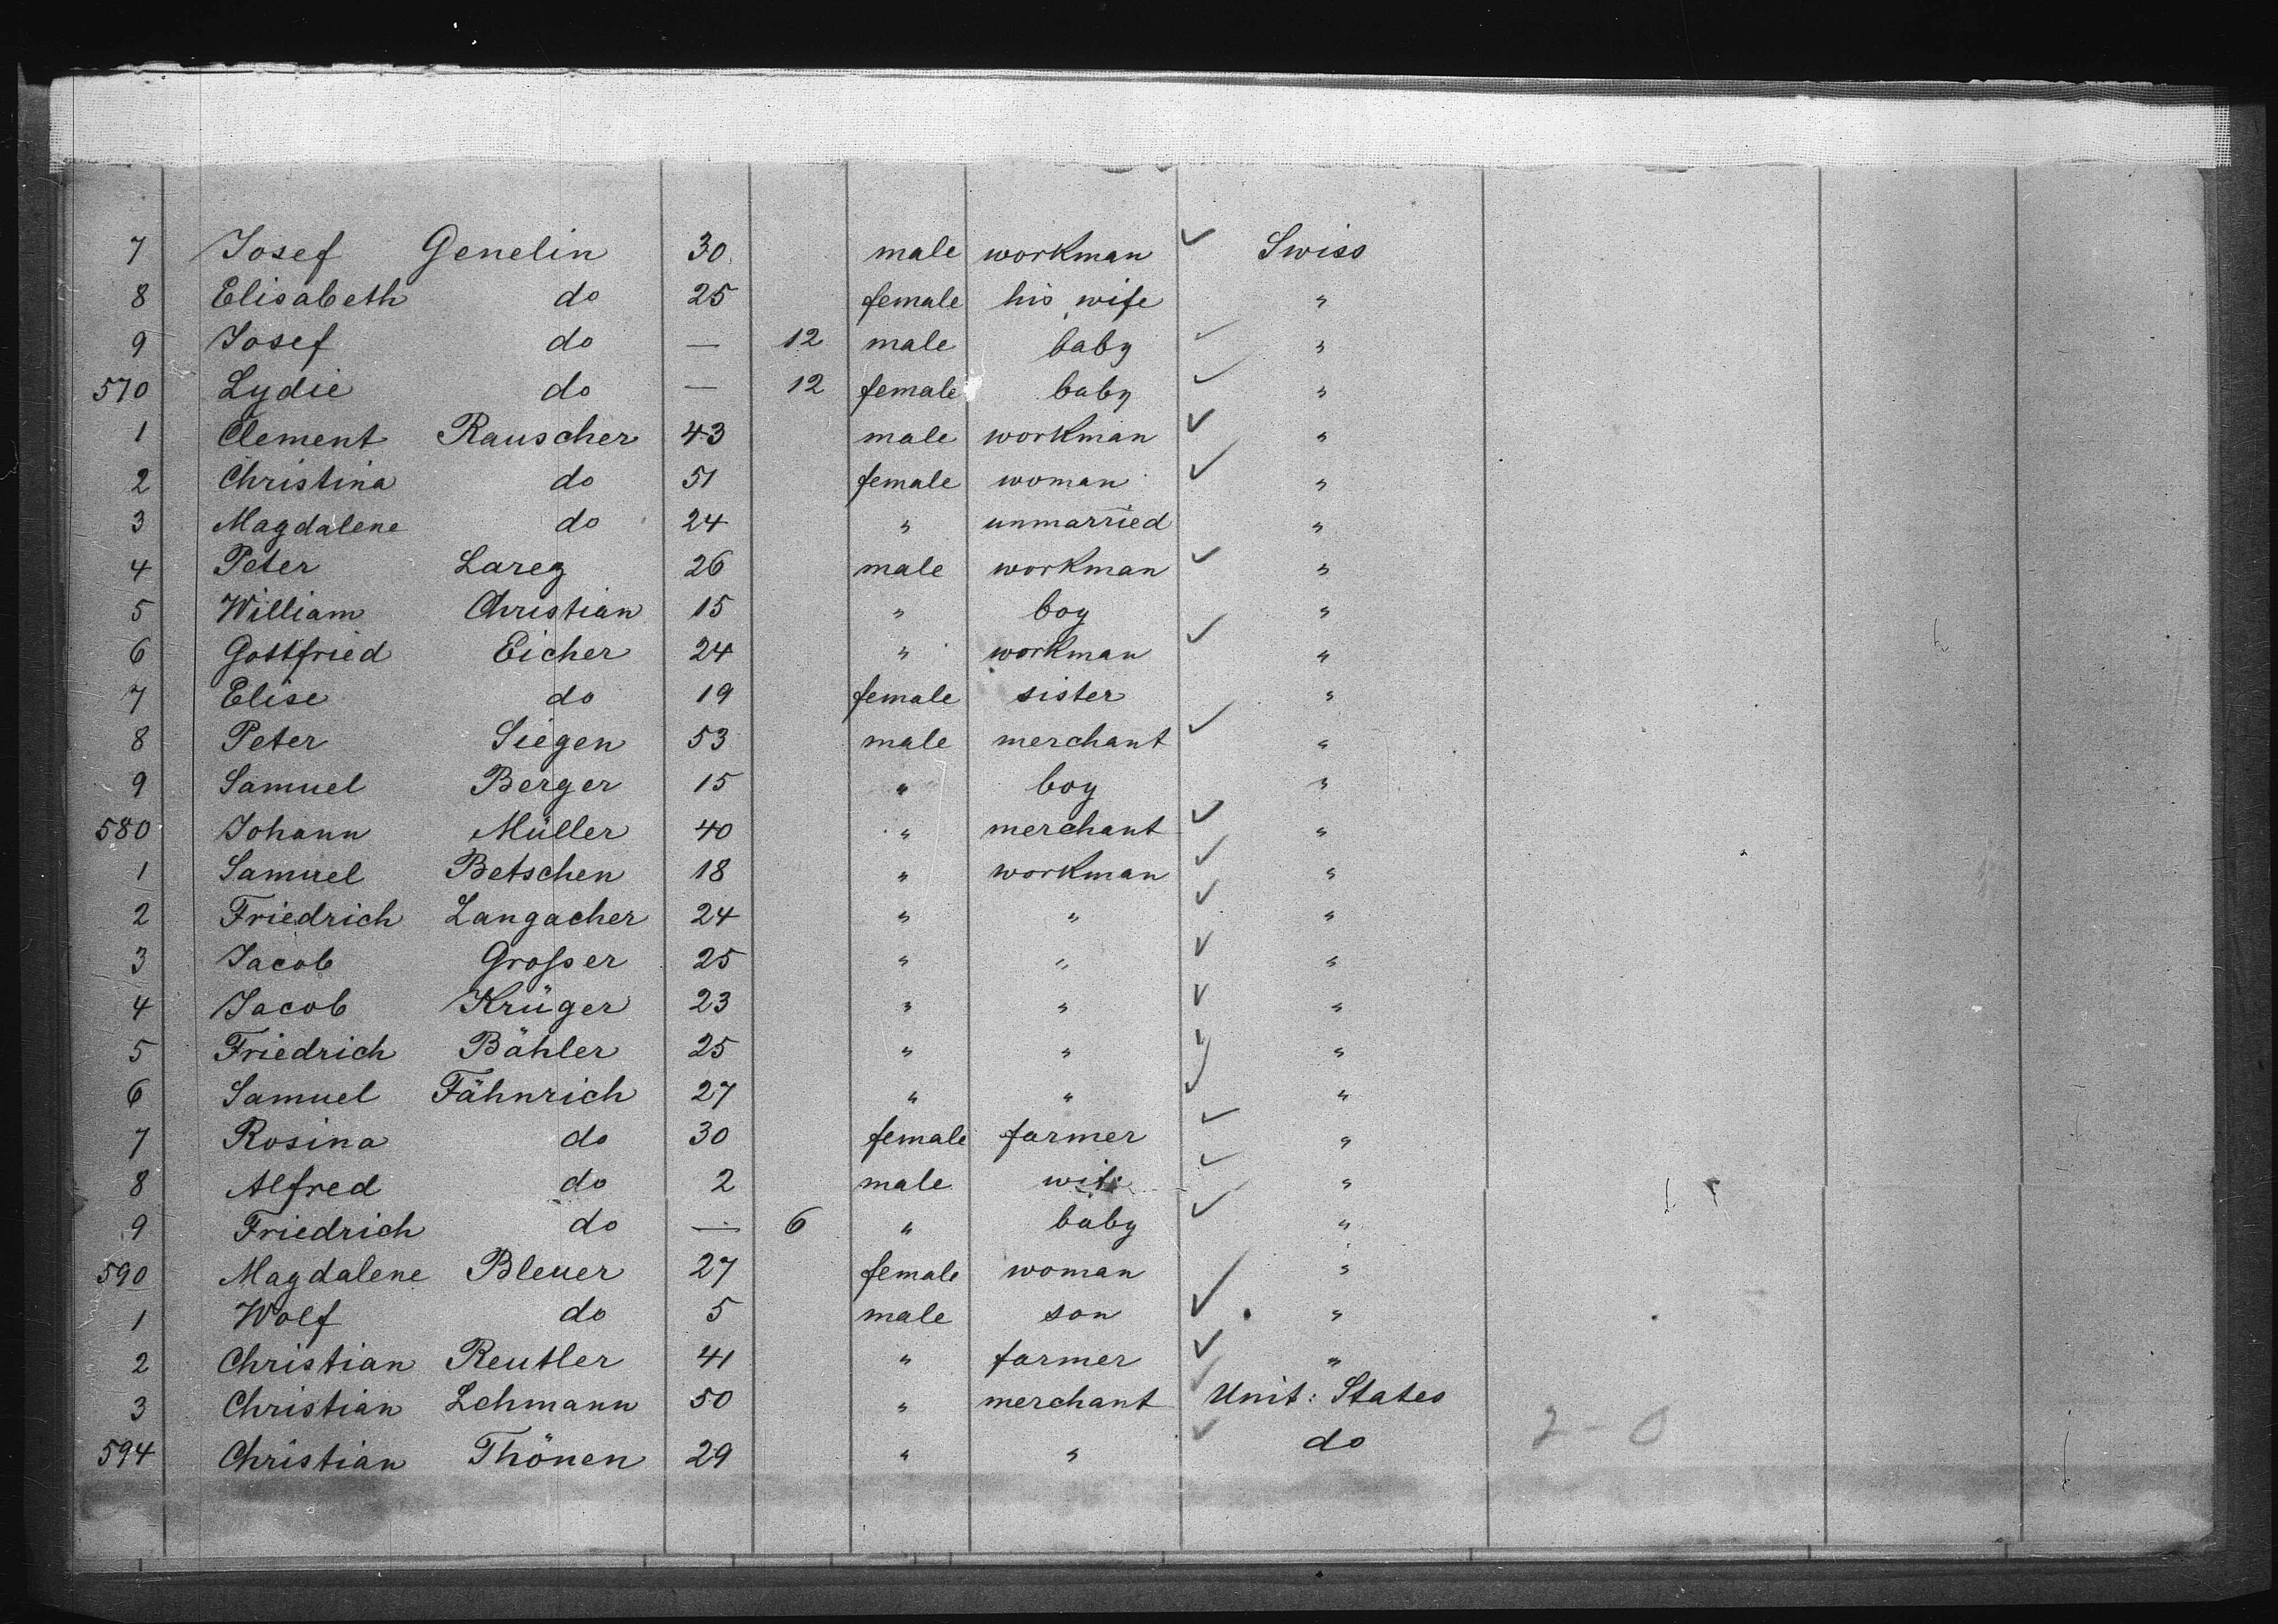 7 Josef Genelin 30 male workman ✓ Swiss
8 Elisabeth do 25 female his wife "
9 Josef do — 12 male baby ✓ "
570 Lydie do — 12 female baby ✓ "
1 Clement Rauscher 43 male workman ✓ "
2 Christina do 51 female woman ✓ "
3 Magdalene do 24 " unmarried "
4 Peter Lareg 26 male workman ✓ "
5 William Christian 15 " boy "
6 Gottfried Eicher 24 " workman ✓ "
7 Elise do 19 female sister "
8 Peter Siegen 53 male merchant ✓ "
9 Samuel Berger 15 " boy "
580 Johann Müller 40 " merchant ✓ "
1 Samuel Betschen 18 " workman ✓ "
2 Friedrich Langacher 24 " " ✓ "
3 Jacob Groſser 25 " " ✓ "
4 Jacob Krüger 23 " " ✓ "
5 Friedrich Bähler 25 " " ✓ "
6 Samuel Fähnrich 27 " " ✓ "
7 Rosina do 30 female farmer ✓ "
8 Alfred do 2 male ✓ "
9 Friedrich do — 6 " baby ✓ "
590 Magdalene Bleuer 27 female woman "
1 Wolf do 5 male son ✓ "
2 Christian Reutler 41 " farmer ✓ "
3 Christian Lehmann 50 " merchant ✓ Unit: States
594 Christian Thönen 29 " " ✓ do 2-0